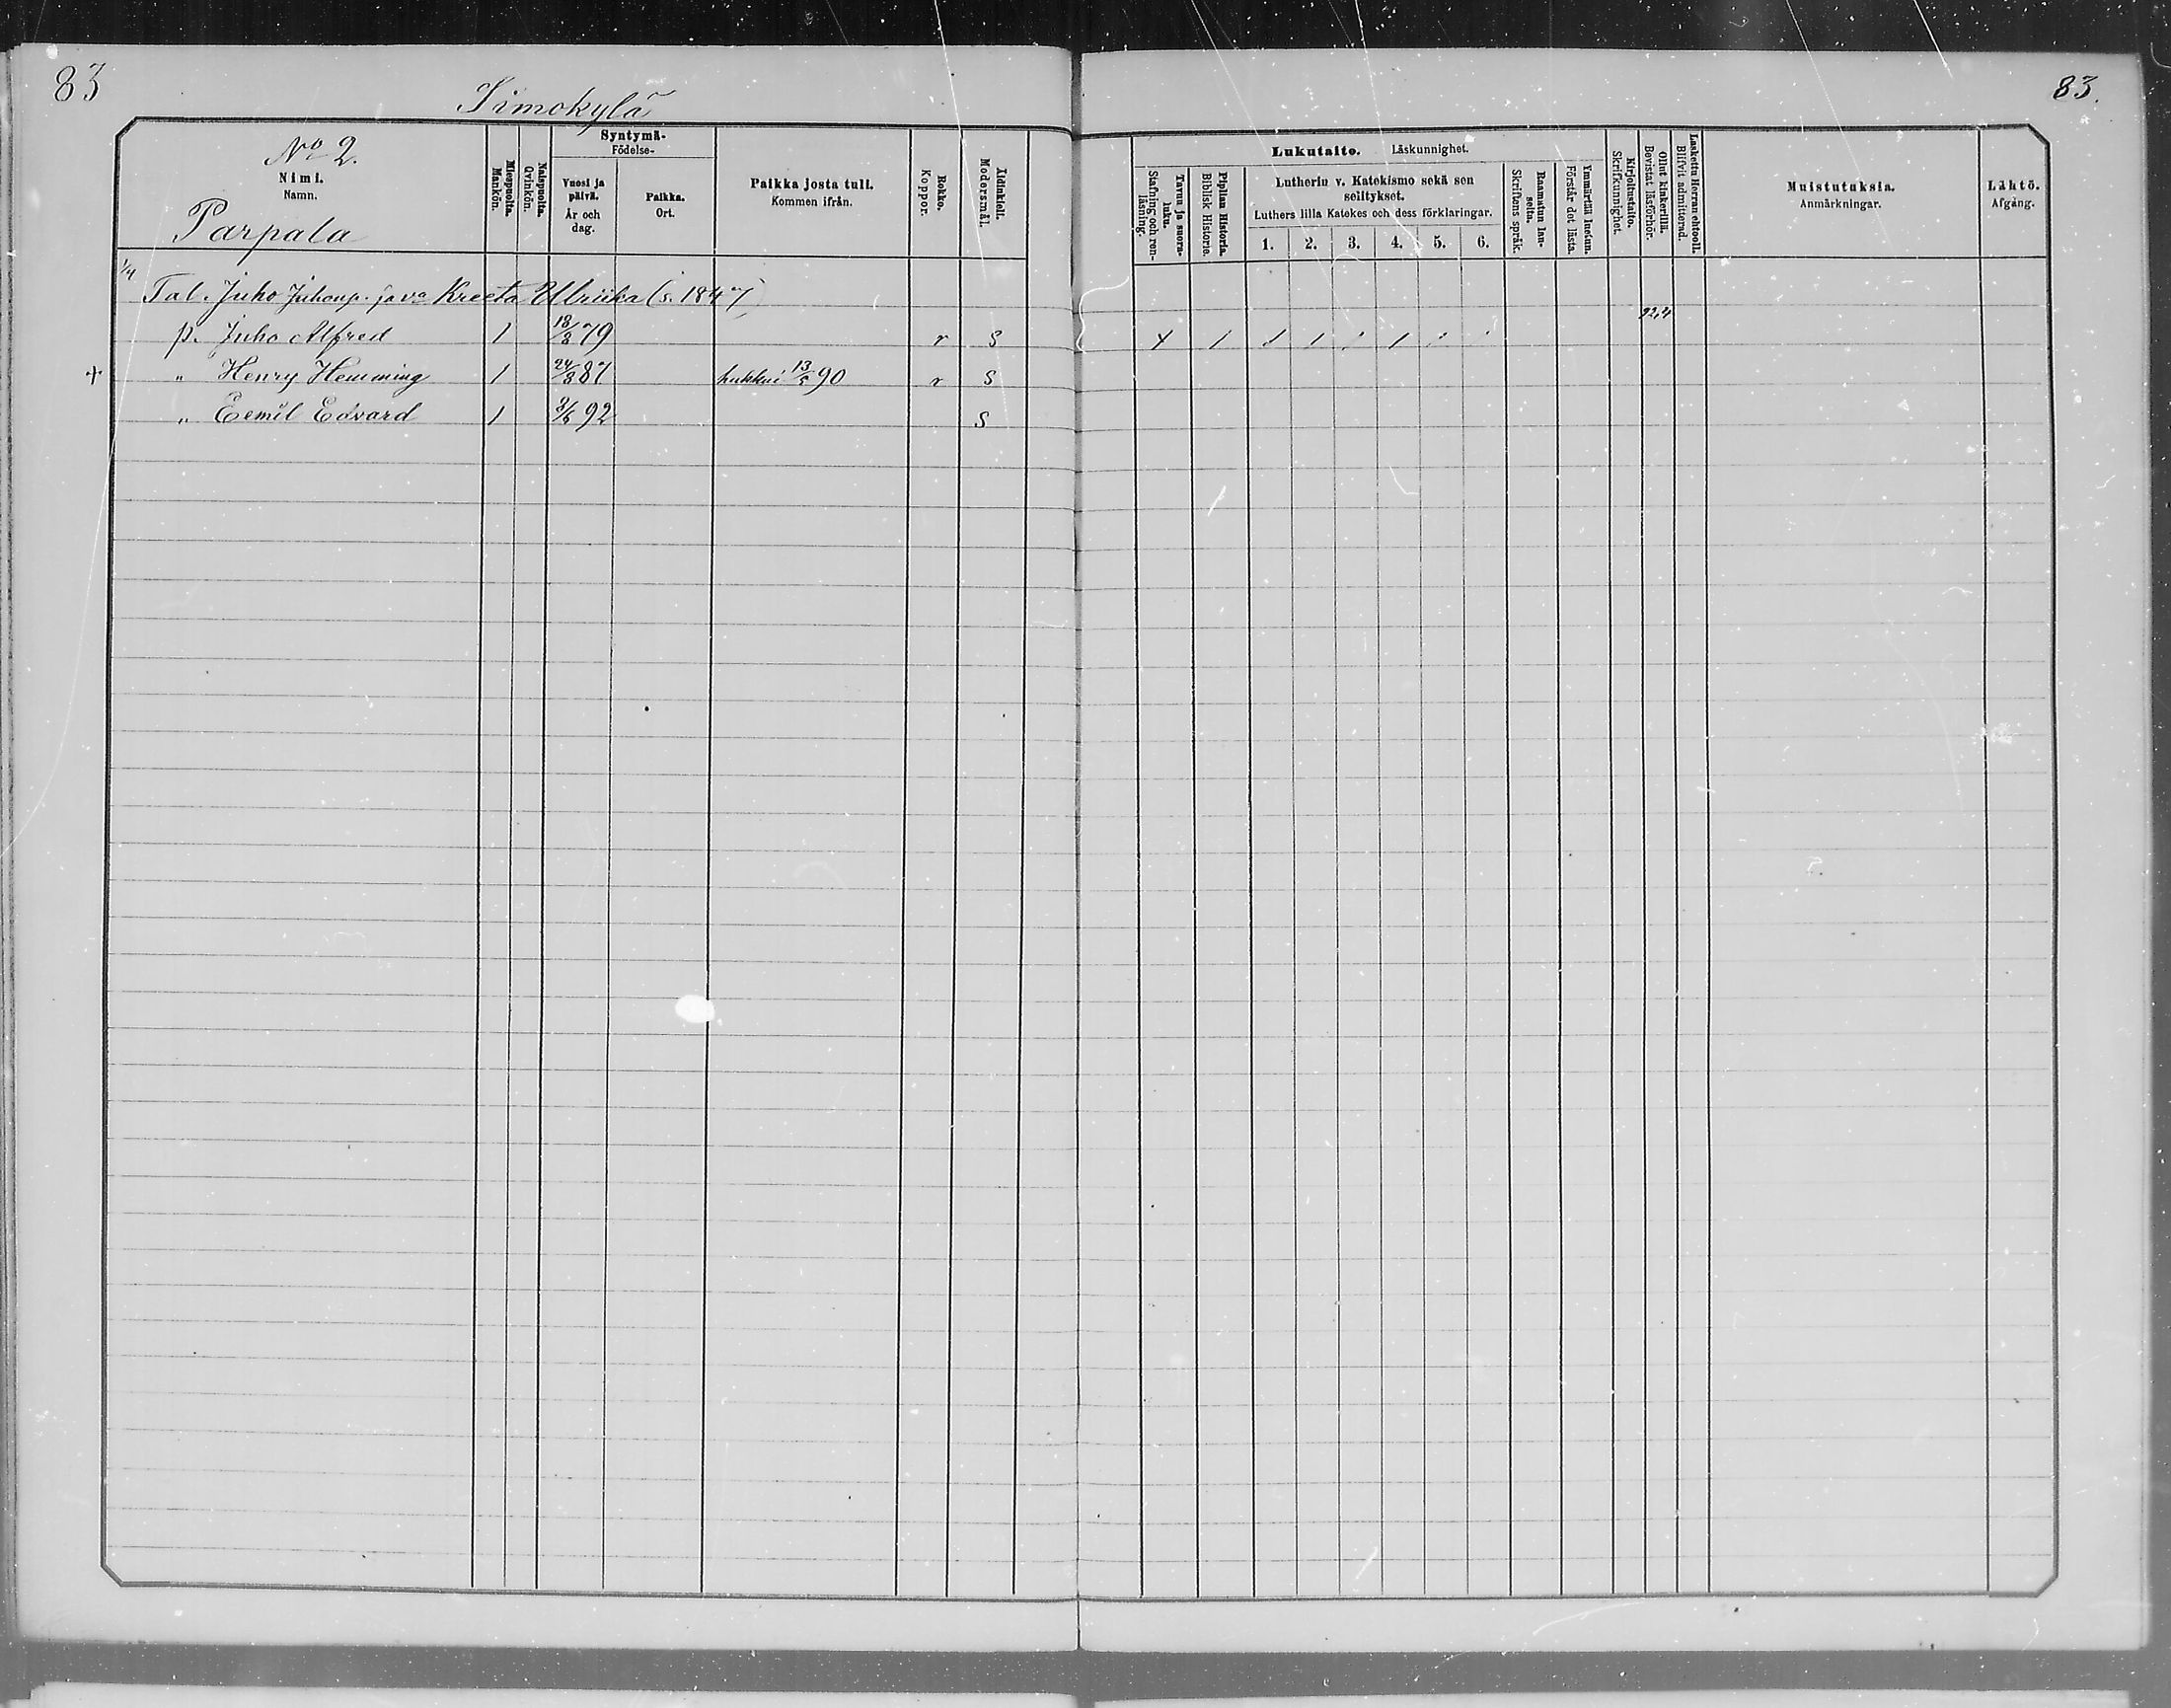 83
83.
Simokylä
No 2.
Nimi.
Namn.
Parpala
Miespuolta.
Mankön.
Naispuolta.
Qvinkön.
Syntymä-
Födelse-
Vuosi ja
päivä.
År och
dag.
Paikka.
Ort.
Paikka josta tuli.
Kommen ifrån.
Rokko.
Koppor.
Äidinkieli.
Modersmål.
Lukutaito. Läskunnighet.
Tavuu ja suora-
luku.
Stafning och ren-
läsning.
Piplian Historia.
Biblisk Historie.
Lutherin v. Katekismo sekä sen
selitykset.
Luthers lilla Katekes och dess förklaringar.
1. 2. 3. 4. 5. 6.
Raamatun lau-
seita.
Skriftens språk.
Ymmärtää luetun.
Förstår det lästa.
Kirjoitustaito.
Skrifkunnighet.
Ollut kinkerillä.
Bevistat läsförhör.
Laskettu Herran ehtooll.
Blifvit admitterad.
Muistutuksia.
Anmärkningar.
Lähtö.
Afgång.
1/4
Tal. Juho Juhonp. ja vo Kreeta Ulriika (s. 1847)
p. Juho Alfred 1 18/8 79 r S 92,4
+ " Henry Hemming 1 24/8 87 hukkui 13/5 90 r S
" Eemil Edvard 1 92 S